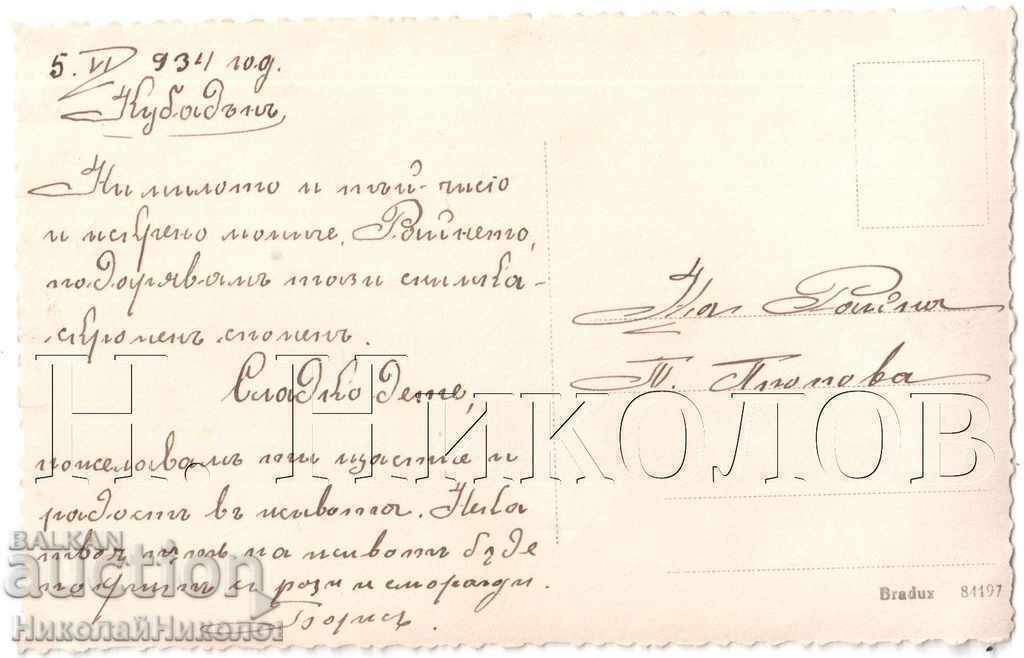 5. VI 934 год.
Кубадънъ
На милото и най-чисто
и искрено момиче, Райнето,
подарявамъ тази снимка -
скроменъ споменъ.
Сладко дете,
пожелавамъ ти щастие и
радость въ живота. Нека
твоя пъть на животъ бъде
покритъ съ рози и смарагди.
Борисъ.
На Райна
Т. Попова
Bradux 84197
Н. НИКОЛОВ
BALKAN
auction
НиколайНиколов